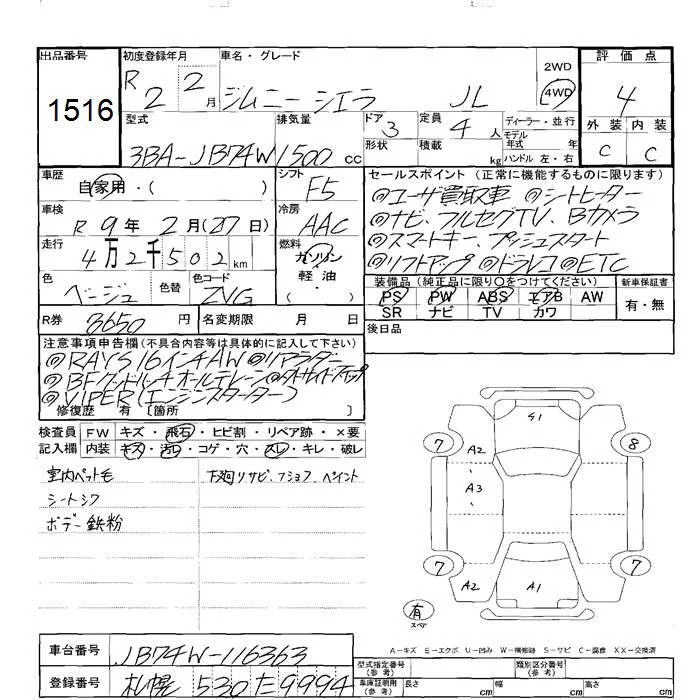 出品番号 初度登録年月 車名・グレード 評価点
1516 R 2 2月 ジムニーシエラ JL 2WD 4WD 4
外装 内装
C C
型式 排気量 ドア 定員 ディーラー・並行
3BA-JB74W 1500cc 3 4人 モデル年式 年
形状 積載 kg ハンドル 左・右
車歴 自家用・( ) シフト F5
車検 R 9年 2月(27日) 冷房 AAC
走行 4万2千502km 燃料 ガソリン
軽油・( )
色 ベージュ 色替 色コード ZVG
R券 8650円 名変期限 月 日
セールスポイント(正常に機能するものに限ります)
◎ユーザ買取車 ◎シートヒーター
◎ナビ、フルセグTV、Bカメラ
◎スマートキー、プッシュスタート
◎リフトアップ ◎ドラレコ ◎ETC
装備品(純正品に限り○をつけてください) 新車保証書
PS PW ABS エアB AW 有・無
SR ナビ TV カワ
後日品
注意事項申告欄(不具合内容等は具体的に記入して下さい)
◎RAYS16インチAW ◎リアラダー
◎BFグッドリッチオールテレーン
◎VIPER(エンジンスターター)
修復歴 有 〔箇所 〕
検査員記入欄 FW キズ・飛石・ヒビ割・リペア跡・×要
内装 キズ・汚レ・コゲ・穴・スレ・キレ・破レ
室内ペット毛 下廻リサビ、フショク、ペイント
シートシワ
ボデー鉄粉
G1
7 8
A2
A3
7 7
A2 A1
有
スペア
A-キズ E-エクボ U-凹み W-補修跡 S-サビ C-腐食 XX-交換済
車台番号 JB74W-116363
登録番号 札幌 530 た 9994
型式指定番号(参考) 類別区分番号(参考)
車庫証明用(参考) 長さ cm 幅 cm 高さ cm